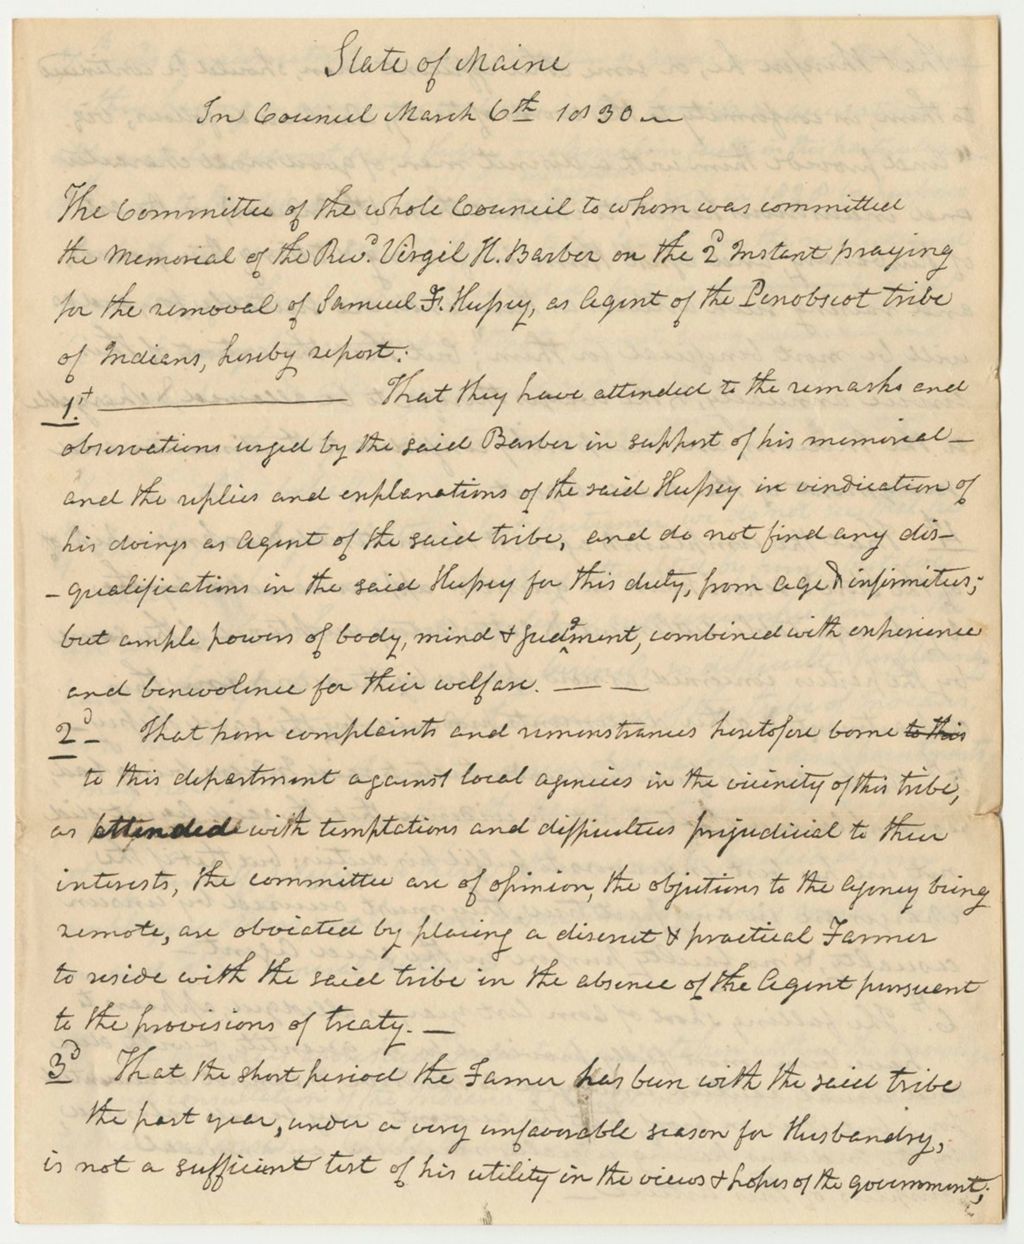 State of Maine
In Council March 6th 1830
The Committee of the whole Council to whom was committed
the Memorial of the Revd. Virgil H. Barber on the 2d Instant praying
for the removal of Samuel F. Hussey, as Agent of the Penobscot tribe
of Indians, hereby report:
1st That they have attended to the remarks and
observations urged by the said Barber in support of his memorial—
and the replies and explanations of the said Hussey in vindication of
his doings as Agent of the said tribe, and do not find any dis-
-qualifications in the said Hussey for this duty, from age & infirmities;
but ample powers of body, mind & judgment, combined with experience
and benevolence for their welfare. — —
2d That from complaints and remonstrances heretofore borne to this
to this department against local agencies in the vicinity of this tribe,
as attended with temptations and difficulties prejudicial to their
interests, the committee are of opinion, the objections to the Agency being
remote, are obviated by placing a discreet & practical Farmer
to reside with the said tribe in the absence of the Agent pursuant
to the provisions of treaty. —
3d That the short period the Farmer has been with the said tribe
the past year, under a very unfavorable season for Husbandry,
is not a sufficient test of his utility in the views & hopes of the government;